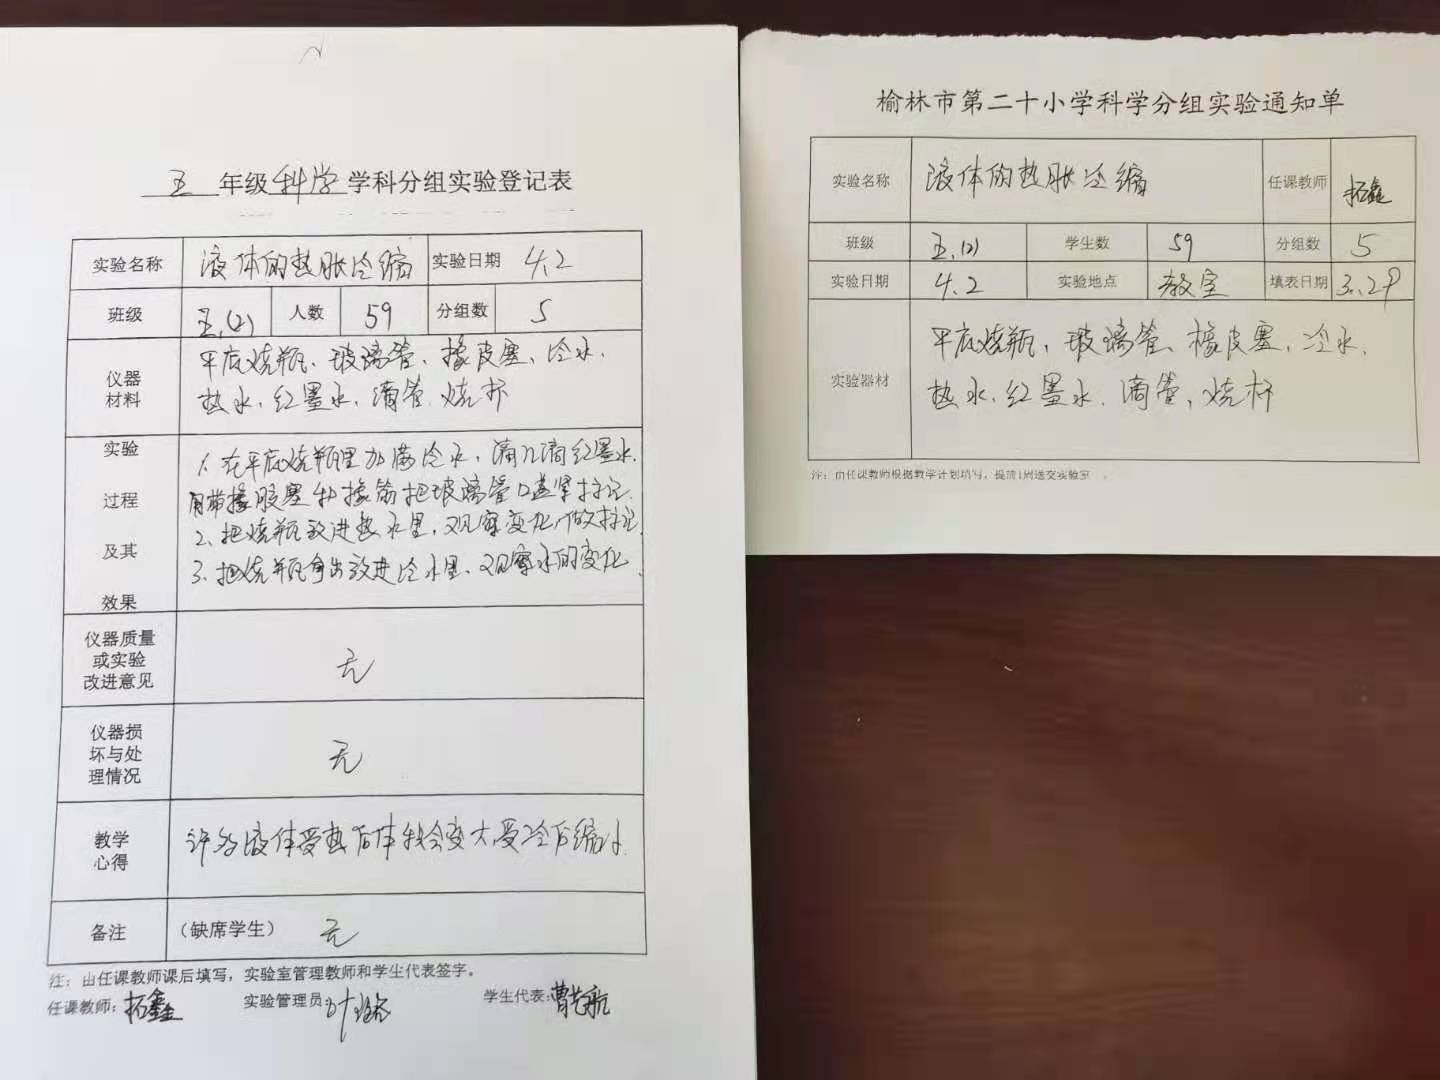 五 年级 科学 学科分组实验登记表
实验名称 液体的热胀冷缩 实验日期 4.2
班级 五.(2) 人数 59 分组数 5
仪器材料
平底烧瓶、玻璃管、橡皮塞、冷水、
热水、红墨水、滴管、烧杯
实验过程及其效果
1、在平底烧瓶里加满冷水,滴几滴红墨水.
用带橡胶塞和橡筋把玻璃管口盖紧标记.
2、把烧瓶放进热水里,观察变化,做标记.
3、把烧瓶拿出放进冷水里、观察水的变化
仪器质量
或实验
改进意见
无
仪器损
坏与处
理情况
无
教学
心得
许多液体受热后体积会变大,受冷后缩小.
备注 (缺席学生) 无
注:由任课教师课后填写,实验室管理教师和学生代表签字。
任课教师:拓鑫 实验管理员: 学生代表:曹艺航
榆林市第二十小学科学分组实验通知单
实验名称 液体的热胀冷缩 任课教师 拓鑫
班级 五.(2) 学生数 59 分组数 5
实验日期 4.2 实验地点 教室 填表日期 3.29
实验器材
平底烧瓶、玻璃管、橡皮塞、冷水、
热水、红墨水、滴管、烧杯
注:由任课教师根据教学计划填写,提前1周送交实验室。